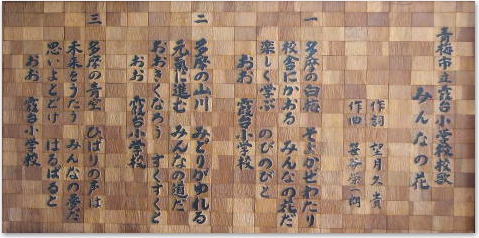 青梅市立霞台小学校校歌
みんなの花
作詞 望月久貴
作曲 笹谷栄一朗
一 多摩の白梅 そよかぜわたり
校舎にかおる みんなの花だ
楽しく学ぶ のびのびと
おお 霞台小学校
二 多摩の山川 みどりがゆれる
元気に進む みんなの道だ
おおきくなろう すくすくと
おお 霞台小学校
三 多摩の青空 ひばりの声は
未来をうたう みんなの夢だ
思いよとどけ はるばると
おお 霞台小学校